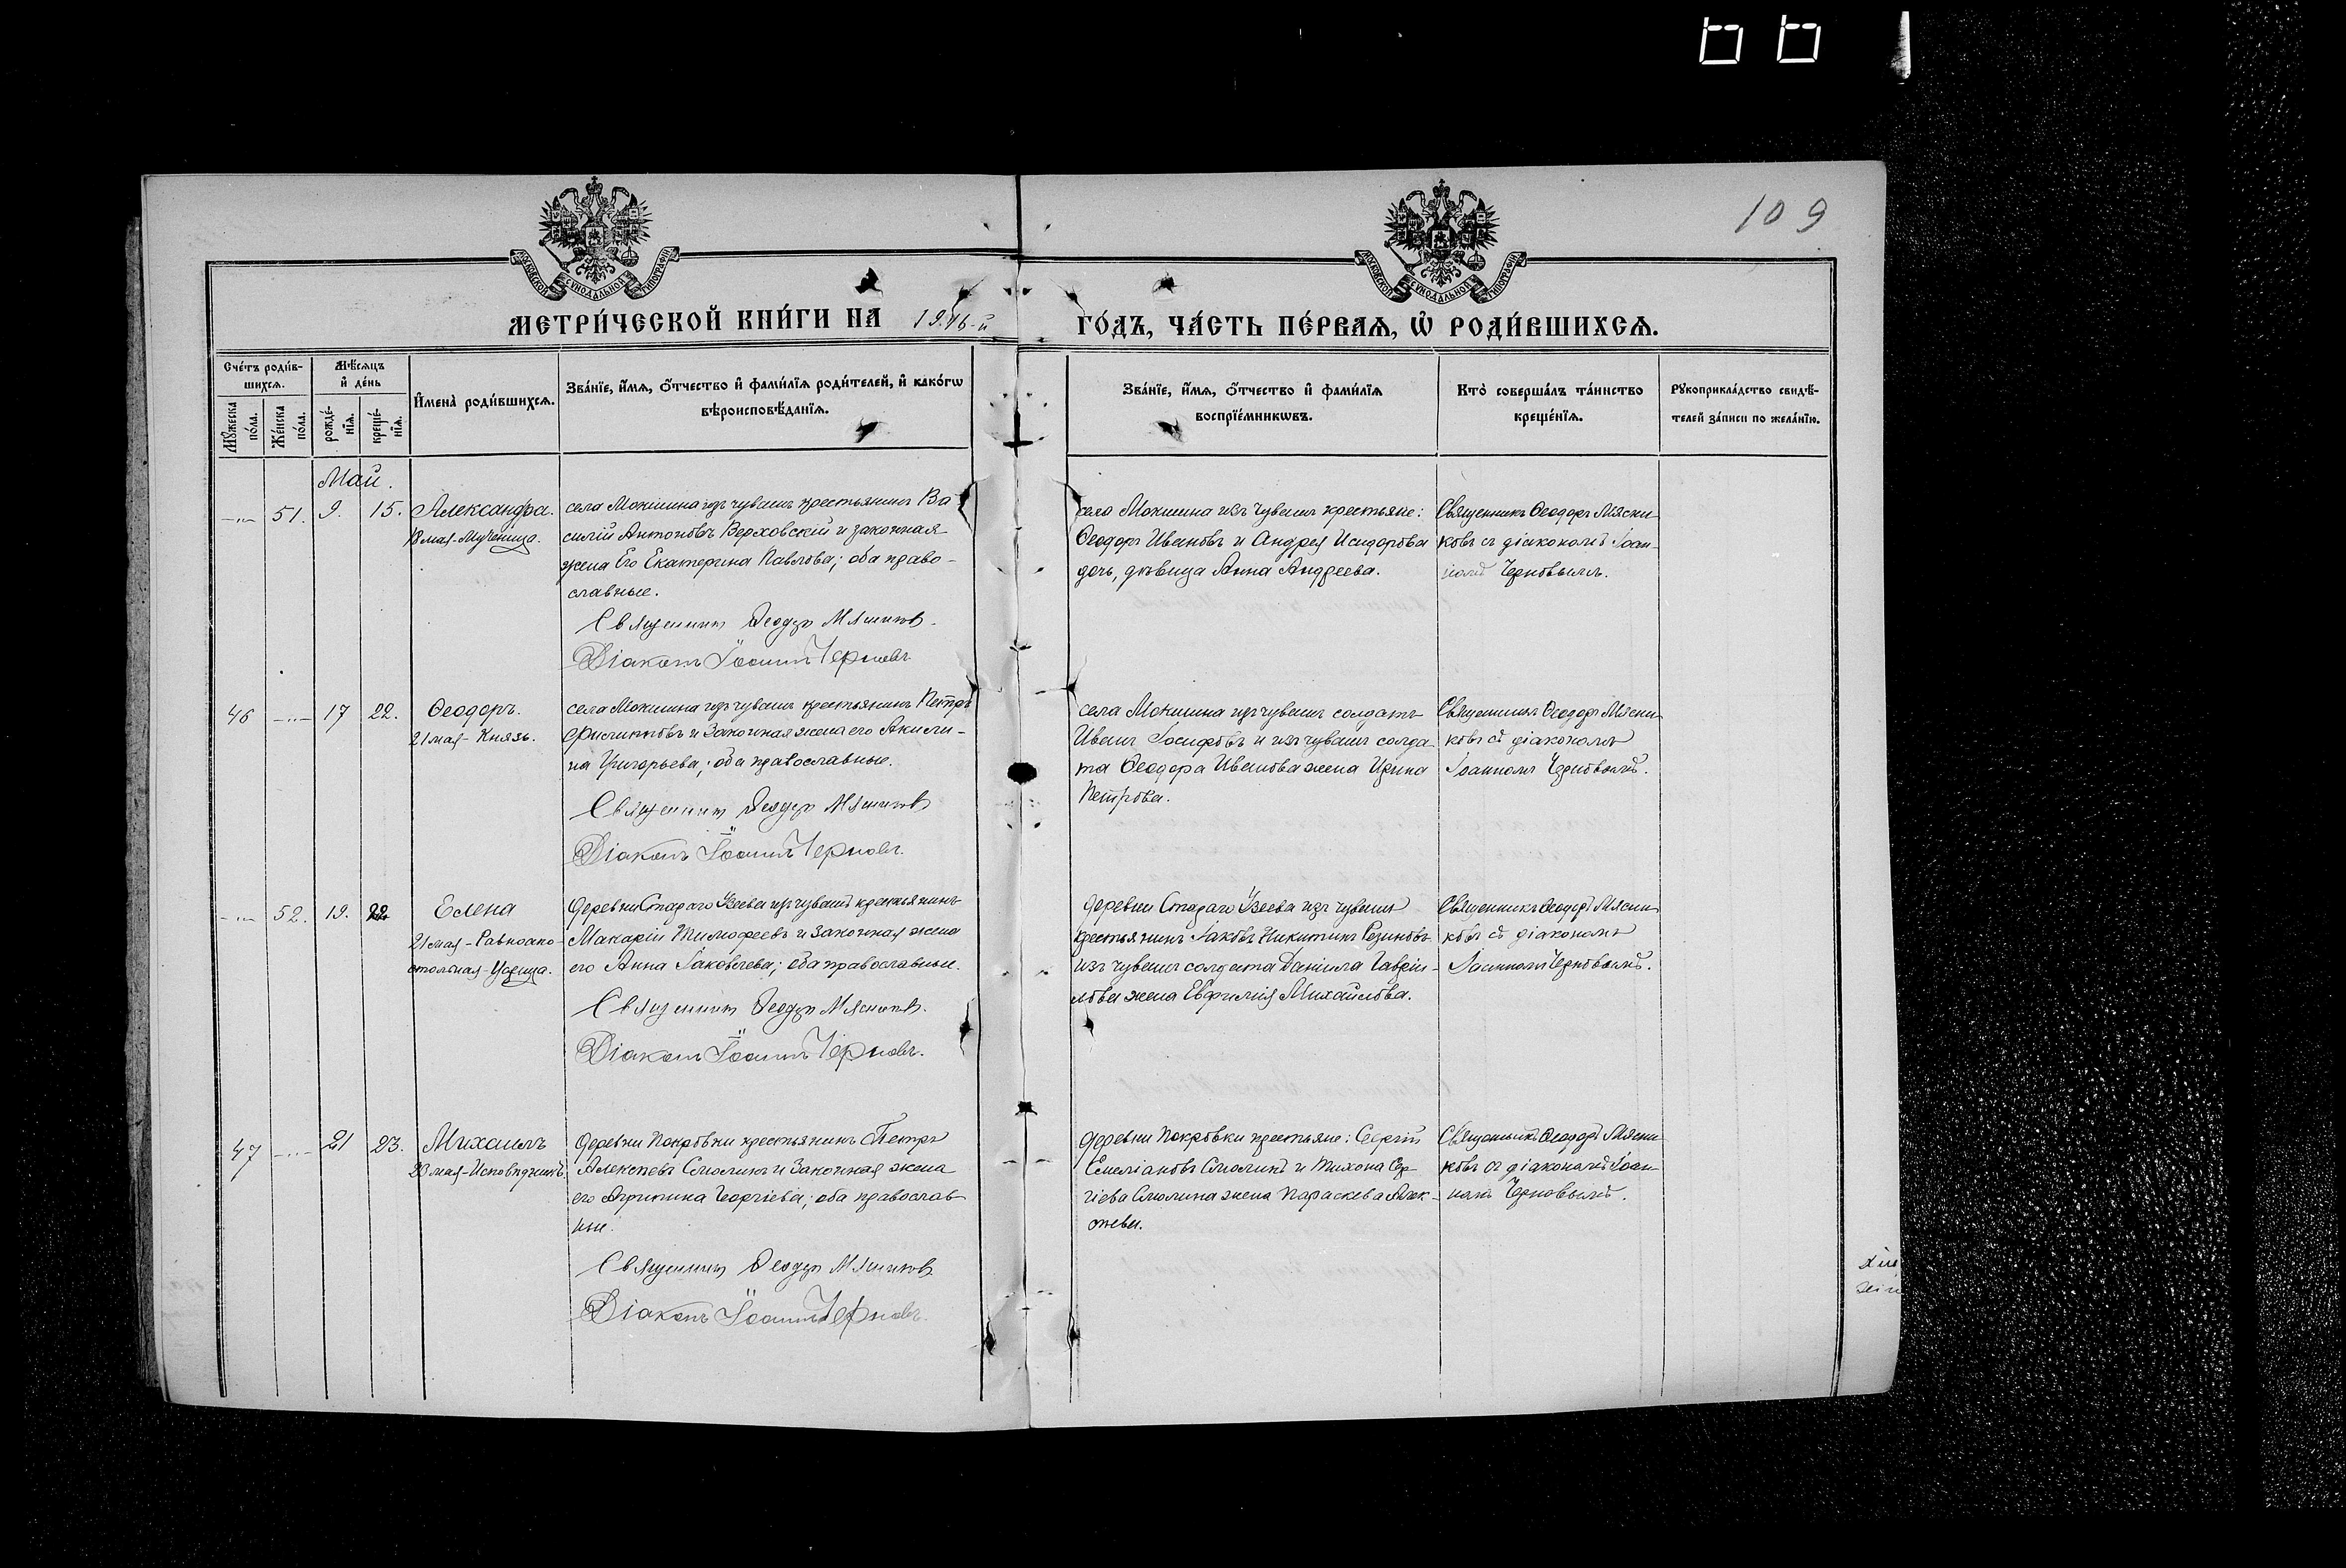 109
МОСКОВСКОЙ СѴНОДАЛЬНОЙ ТИПОГРАФІИ
МОСКОВСКОЙ СѴНОДАЛЬНОЙ ТИПОГРАФІИ
МЕТРИ́ЧЕСКОЙ КНИ́ГИ НА 1916-й ГО́ДЪ, ЧА́СТЬ ПЕ́РВАѦ, Ѡ҆ РОДИ́ВШИХСѦ.
Сче́тъ роди́в-
шихсѧ.
Мꙋ́жеска по́ла.
Же́нска по́ла.
Мѣ́сѧцъ
и҆ де́нь
рожде́-
нїѧ.
креще́-
нїѧ.
И҆мена̀ роди́вшихсѧ.
Зва́нїе, и҆́мѧ, ѻ҆́тчество и҆ фами́лїѧ роди́телей, и҆ како́гѡ
вѣроисповѣ́данїѧ.
Зва́нїе, и҆́мѧ, ѻ҆́тчество и҆ фами́лїѧ
воспрїе́мникѡвъ.
Кто̀ соверша́лъ та́инство
креще́нїѧ.
Рꙋкоприкла́дство свидѣ́-
телей за́писи по жела́нїю.
Май.
51. 9. 15. Александра.
18 мая-Мученица.
села Мокшина изъ чувашъ крестьянинъ Ва
силій Антоновъ Верховскій и законная
жена Его Екатерина Павлова; оба право-
славные.
Священникъ Ѳеодоръ Мясниковъ.
Діаконъ Іоаннъ Черновъ.
села Мокшина изъ чувашъ крестьяне:
Ѳеодоръ Ивановъ и Андрея Исидорова
дочь, дѣвица Анна Андреева.
Священникъ Ѳеодоръ Мясни
ковъ съ діакономъ Іоан-
номъ Черновымъ.
46 17 22. Ѳеодоръ.
21 мая- Князь.
села Мокшина изъ чувашъ крестьянинъ Петръ
Филипповъ и Законная жена его Акили-
на Григорьева; оба православные.
Священникъ Ѳеодоръ Мясниковъ
Діаконъ Іоаннъ Черновъ.
села Мокшина изъ чувашъ солдатъ
Иванъ Іосифовъ и изъ чувашъ солда
та Ѳеодора Иванова жена Ирина
Петрова.
Священникъ Ѳеодоръ Мясни
ковъ съ діакономъ
Іоанномъ Черновымъ.
52. 19. 22 Елена
21 мая-Равноапо-
стольная-Царица.
деревни Стараго Узеева изъ чувашъ крестьянинъ
Макарій Тимофеевъ и Законная жена
его Анна Іаковлева; оба православные.
Священникъ Ѳеодоръ Мясниковъ.
Діаконъ Іоаннъ Черновъ.
деревни Стараго Узеева изъ чувашъ
крестьянинъ Іаковъ Никитинъ Резиновъ
изъ чувашъ солдата Даніила Гавріи-
лова жена Евфимія Михайлова.
Священникъ Ѳеодоръ Мясни
ковъ съ діакономъ
Іоанномъ Черновымъ.
47 21 23. Михаилъ
23 мая-Исповѣдникъ.
деревни Покровки крестьянинъ Петръ
Алексѣевъ Смолинъ и Законная жена
его Агрипина Георгіева; оба православ
ные.
Священникъ Ѳеодоръ Мясниковъ
Діаконъ Іоаннъ Черновъ.
деревни Покровки крестьяне: Сергій
Емеліановъ Смолинъ и Тихона Сер-
гіева Смолина жена Параскева Алек-
сѣева.
Священникъ Ѳеодоръ Мясни
ковъ съ діакономъ Іоан-
номъ Черновымъ.